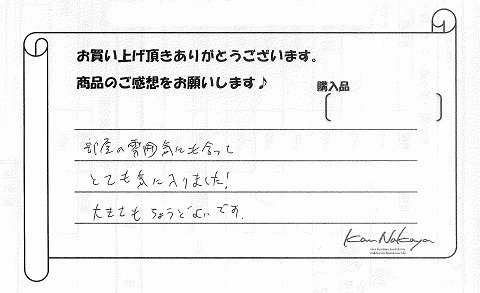 お買い上げ頂きありがとうございます。
商品のご感想をお願いします♪
購入品
部屋の雰囲気にも合って
とても気に入りました!
大きさもちょうどよいです。
Kan Nakaya